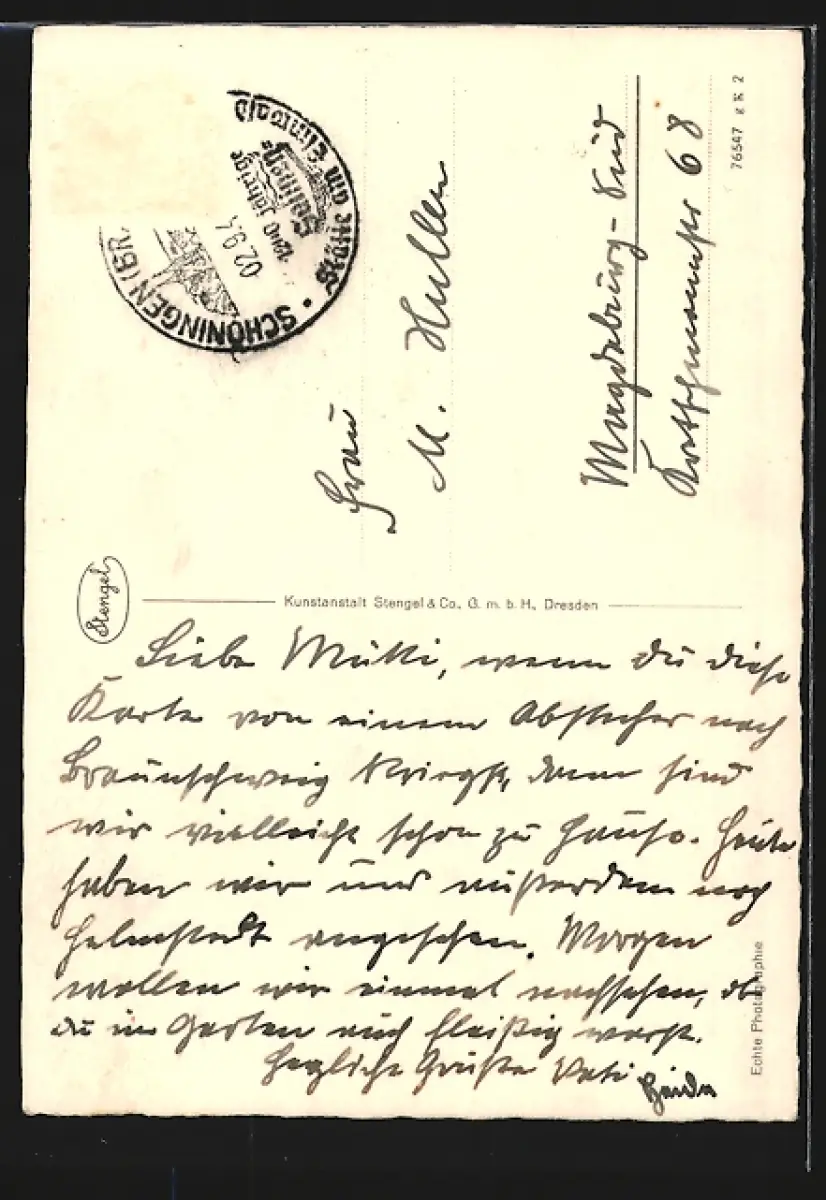 SCHÖNINGEN (BR
Stätte am Elmwald
1200 jährige
Salinen=
02.9.4
Frau
M. Hullen
Magdeburg-Süd
68
76547 g K 2
Stengel
Kunstanstalt Stengel & Co., G. m. b. H., Dresden
Liebe Mutti, wenn du diese
Karte von einem Abstecher nach
Braunschweig kriegst, dann sind
wir vielleicht schon zu Hause. Heute
haben wir uns außerdem noch
Helmstedt angesehen. Morgen
wollen wir einmal nachsehen, ob
du im Garten auch fleißig warst.
Herzliche Grüße Vati
Heide
Echte Photographie